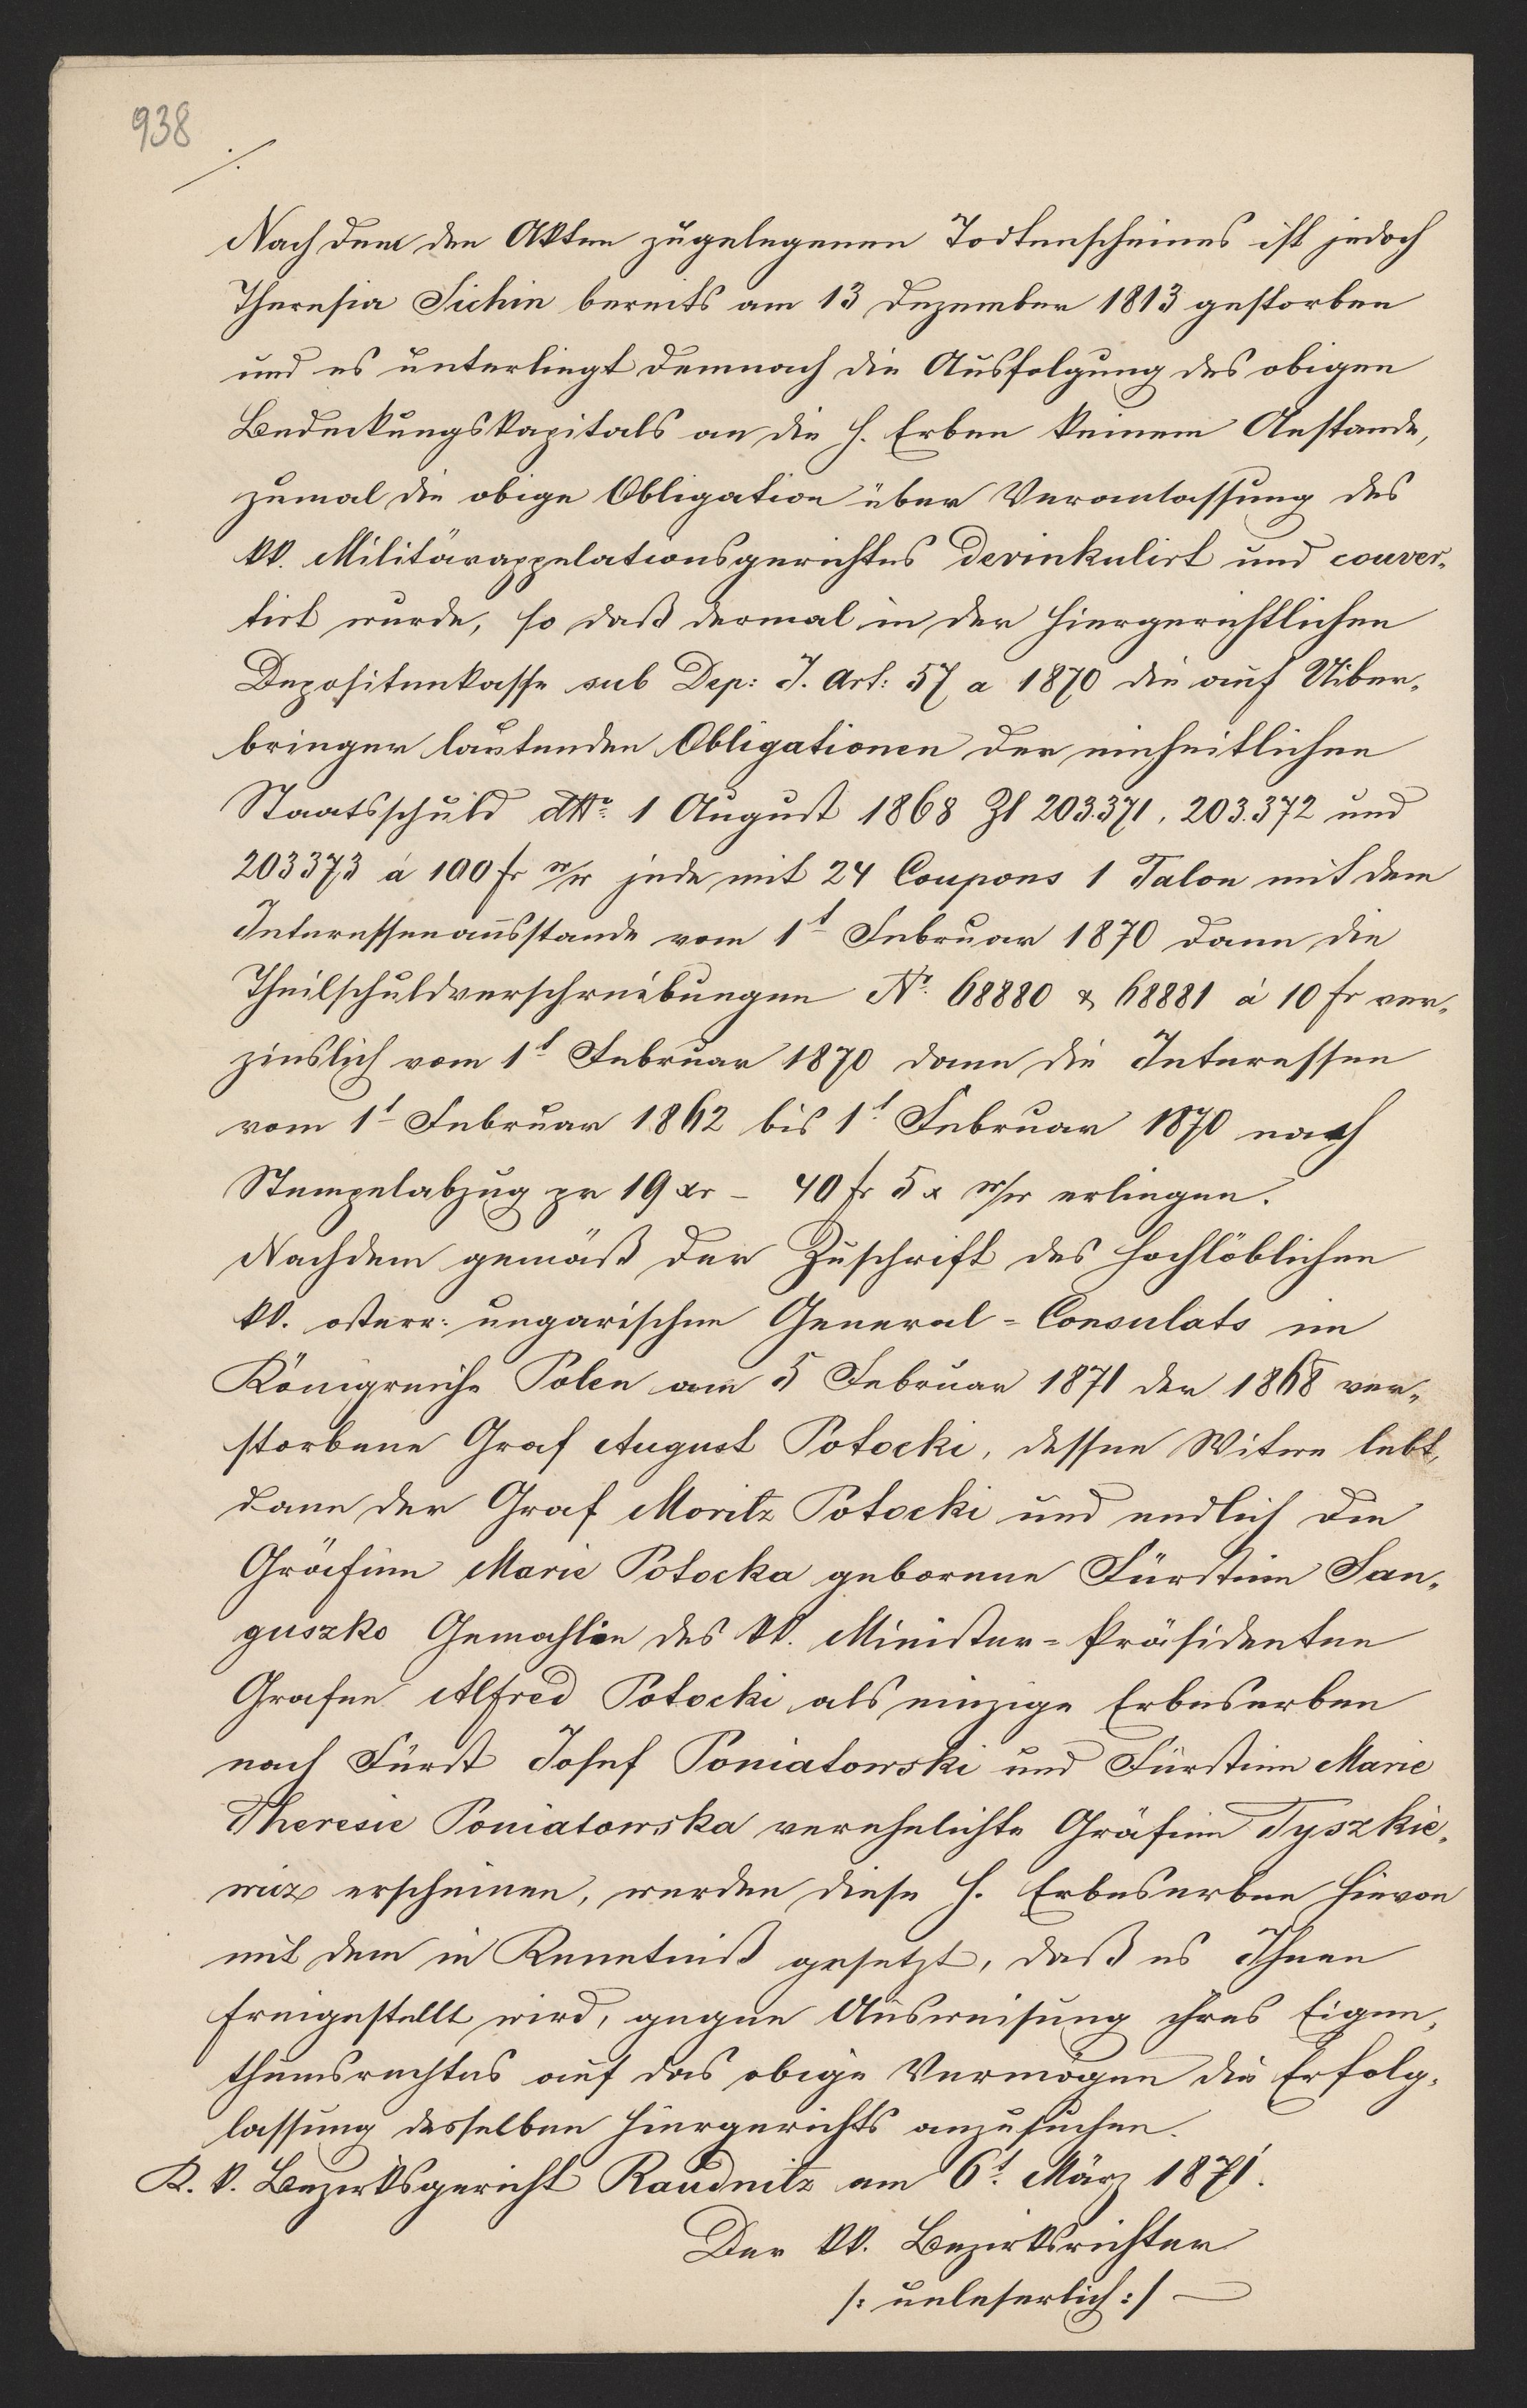 938
./.
Nach dem den Akten zugelegenen Todtenscheines ist jedoch
Theresia Sichin bereits am 13 Dezember 1813 gestorben
und es unterliegt demnach die Ausfolgung des obigen
Bedeckungskapitals an die H. Erben keinem Anstande,
zumal die obige Obligation über Veranlassung des
kk. Militärappelationsgerichtes devinkulirt und couver-
tirt wurde, so daß dermal in der hiergerichtlichen
Depositenkasse sub Dep: J. Art: 57 a 1870 die auf Uiber-
bringer lautenden Obligationen der einheitlichen
Staatsschuld dtto 1 August 1868 Zl 203.371, 203.372 und
203373 á 100 fr jede mit 24 Coupons 1 Talon mit dem
Interessenausstande vom 1t Februar 1870 dann die
Theilschuldverschreibungen Nr. 68880 & 68881 à 10 fr ver-
zinslich vom 1t Februar 1870 dann die Interessen
vom 1t Februar 1862 bis 1t Februar 1870 nach
Stempelabzug pr 19 xr – 40 fr 5 x erliegen.
Nachdem gemäß der Zuschrift des hochlöblichen
kk. osterr: ungarischen General-Consulats im
Königreiche Polen am 5 Februar 1871 der 1868 ver-
storbene Graf August Potocki, dessen Witwe lebt,
dann der Graf Moritz Potocki und endlich die
Gräfinn Marie Potocka geborene Fürstinn San-
guszko Gemahlin des kk. Minister-Präsidenten
Grafen Alfred Potocki als einzige Erbeserben
nach Fürst Josef Poniatowski und Fürstinn Marie
Theresie Poniatowska verehelichte Gräfinn Tyszkie-
wicz erscheinen, werden diese H. Erbeserben hievon
mit dem in Kenntniß gesetzt, daß es Ihnen
freigestellt wird, gegen Ausweisung ihres Eigen-
thumsrechtes auf das obige Vermögen die Erfolg-
lassung desselben hiergerichts anzusuchen.
K. k. Bezirksgericht Raudnitz am 6t. März 1871.
Der kk. Bezirksrichter
/: unleserlich :/ —